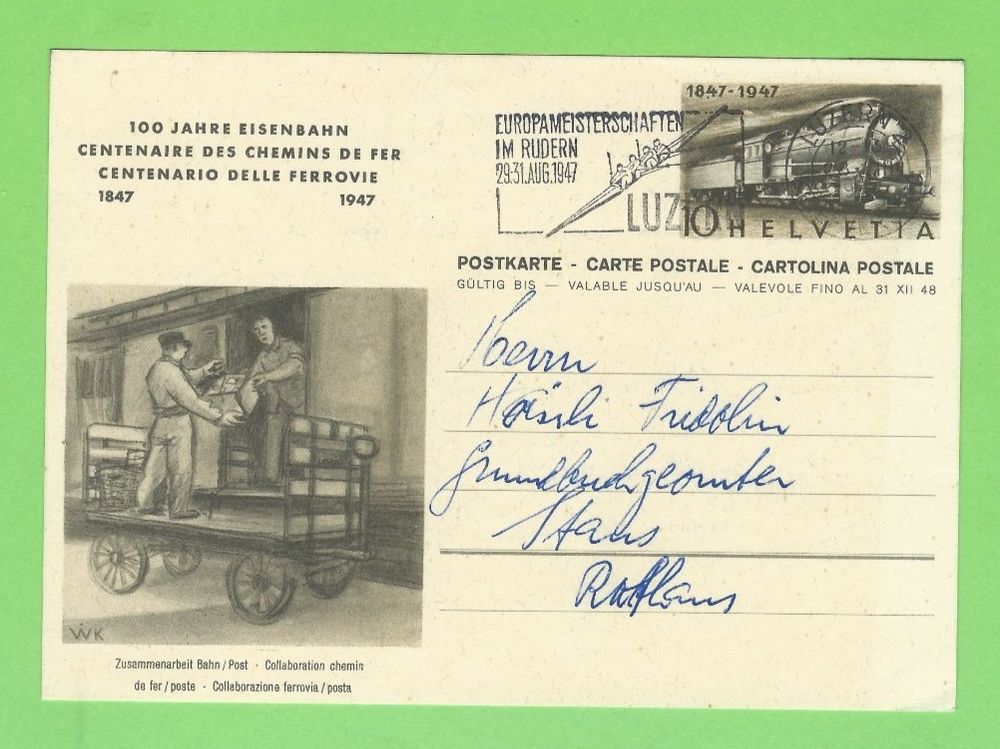 100 JAHRE EISENBAHN
CENTENAIRE DES CHEMINS DE FER
CENTENARIO DELLE FERROVIE
1847 1947
EUROPAMEISTERSCHAFTEN
IM RUDERN
29.-31. AUG. 1947
LUZERN
1847-1947
LUZERN
10 HELVETIA
POSTKARTE - CARTE POSTALE - CARTOLINA POSTALE
GÜLTIG BIS — VALABLE JUSQU'AU — VALEVOLE FINO AL 31 XII 48
Herrn
Hösli Fridolin
Grundbuchgeometer
Stans
Rathaus
WK
Zusammenarbeit Bahn / Post · Collaboration chemin
de fer / poste · Collaborazione ferrovia / posta